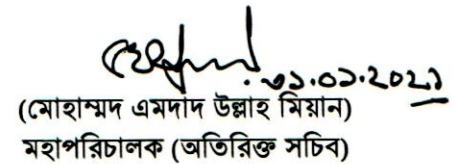 ৩১.০১.২০২১
(মোহাম্মদ এমদাদ উল্লাহ মিয়ান)
মহাপরিচালক (অতিরিক্ত সচিব)